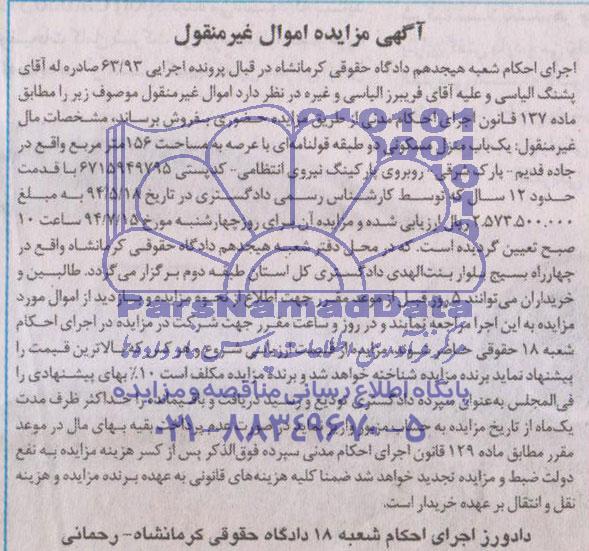 آگهی مزایده اموال غیرمنقول
اجرای احکام شعبه هیجدهم دادگاه حقوقی کرمانشاه در قبال پرونده اجرایی ۶۳/۹۳ صادره له آقای
پشنگ الیاسی و علیه آقای فریبرز الیاسی و غیره در نظر دارد اموال غیرمنقول موصوف زیر را مطابق
ماده ۱۳۷ قانون اجرای احکام مدنی از طریق مزایده حضوری بفروش برساند، مشخصات مال
غیرمنقول: یک‌باب منزل مسکونی دو طبقه قولنامه‌ای با عرصه به مساحت ۱۵۶ متر مربع واقع در
جاده قدیم- پارک شرقی- روبروی پارکینگ نیروی انتظامی- کدپستی ۶۷۱۵۹۴۹۷۹۵ با قدمت
حدود ۱۲ سال که توسط کارشناس رسمی دادگستری در تاریخ ۹۴/۵/۱۸ به مبلغ
۲.۵۷۳.۵۰۰.۰۰۰ ریال ارزیابی شده و مزایده آن برای روز چهارشنبه مورخ ۹۴/۷/۱۵ ساعت ۱۰
صبح تعیین گردیده است. که در محل دفتر شعبه هیجدهم دادگاه حقوقی کرمانشاه واقع در
چهارراه بسیج بلوار بنت‌الهدی دادگستری کل استان طبقه دوم برگزار می‌گردد. طالبین و
خریداران می‌توانند ۵ روز قبل از موعد مقرر جهت اطلاع از نحوه مزایده و بازدید از اموال مورد
مزایده به این اجرا مراجعه نمایند و در روز و ساعت مقرر جهت شرکت در مزایده در اجرای احکام
شعبه ۱۸ حقوقی حاضر شوند. مزایده از قیمت ارزیابی شروع و هرکس که بالاترین قیمت را
پیشنهاد نماید برنده مزایده شناخته خواهد شد و برنده مزایده مکلف است ۱۰٪ بهای پیشنهادی را
فی‌المجلس به‌عنوان سپرده دادگستری تودیع و رسید دریافت و باقیمانده را حداکثر ظرف مدت
یک‌ماه از تاریخ مزایده به حساب مزبور واریز نماید در صورت عدم پرداخت بقیه بهای مال در موعد
مقرر مطابق ماده ۱۲۹ قانون اجرای احکام مدنی سپرده فوق‌الذکر پس از کسر هزینه مزایده به نفع
دولت ضبط و مزایده تجدید خواهد شد ضمنا کلیه هزینه‌های قانونی به عهده برنده مزایده و هزینه
نقل و انتقال بر عهده خریدار است.
دادورز اجرای احکام شعبه ۱۸ دادگاه حقوقی کرمانشاه- رحمانی
ParsNamadData
پایگاه اطلاع رسانی مناقصه و مزایده
۰۲۱-۸۸۳۴۹۶۷۰-۵